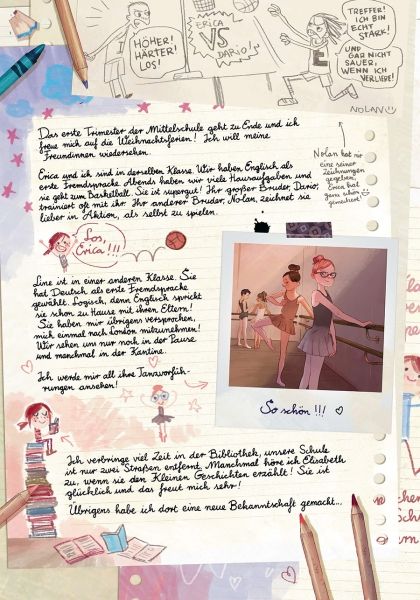 HÖHER!
HÄRTER!
LOS!
ERICA
VS
DARIO!
TREFFER!
ICH BIN
ECHT
STARK!
UND
GAR NICHT
SAUER,
WENN ICH
VERLIERE!
NOLAN
Nolan hat mir
eine seiner
Zeichnungen
gegeben,
Erica hat
ganz schön
gemeckert!
Das erste Trimester der Mittelschule geht zu Ende und ich
freue mich auf die Weihnachtsferien! Ich will meine
Freundinnen wiedersehen.
Erica und ich sind in derselben Klasse. Wir haben Englisch als
erste Fremdsprache. Abends haben wir viele Hausaufgaben und
sie geht zum Basketball. Sie ist supergut! Ihr großer Bruder, Dario,
trainiert oft mit ihr. Ihr anderer Bruder, Nolan, zeichnet sie
lieber in Aktion, als selbst zu spielen.
Los,
Erica!!!
Line ist in einer anderen Klasse. Sie
hat Deutsch als erste Fremdsprache
gewählt. Logisch, denn Englisch spricht
sie schon zu Hause mit ihren Eltern!
Sie haben mir übrigens versprochen,
mich einmal nach London mitzunehmen!
Wir sehen uns nur noch in der Pause
und manchmal in der Kantine.
Ich werde mir all ihre Tanzvorfüh-
rungen ansehen!
So schön !!!
Ich verbringe viel Zeit in der Bibliothek, unsere Schule
ist nur zwei Straßen entfernt. Manchmal höre ich Elisabeth
zu, wenn sie den Kleinen Geschichten erzählt! Sie ist
glücklich und das freut mich sehr!
Übrigens habe ich dort eine neue Bekanntschaft gemacht...